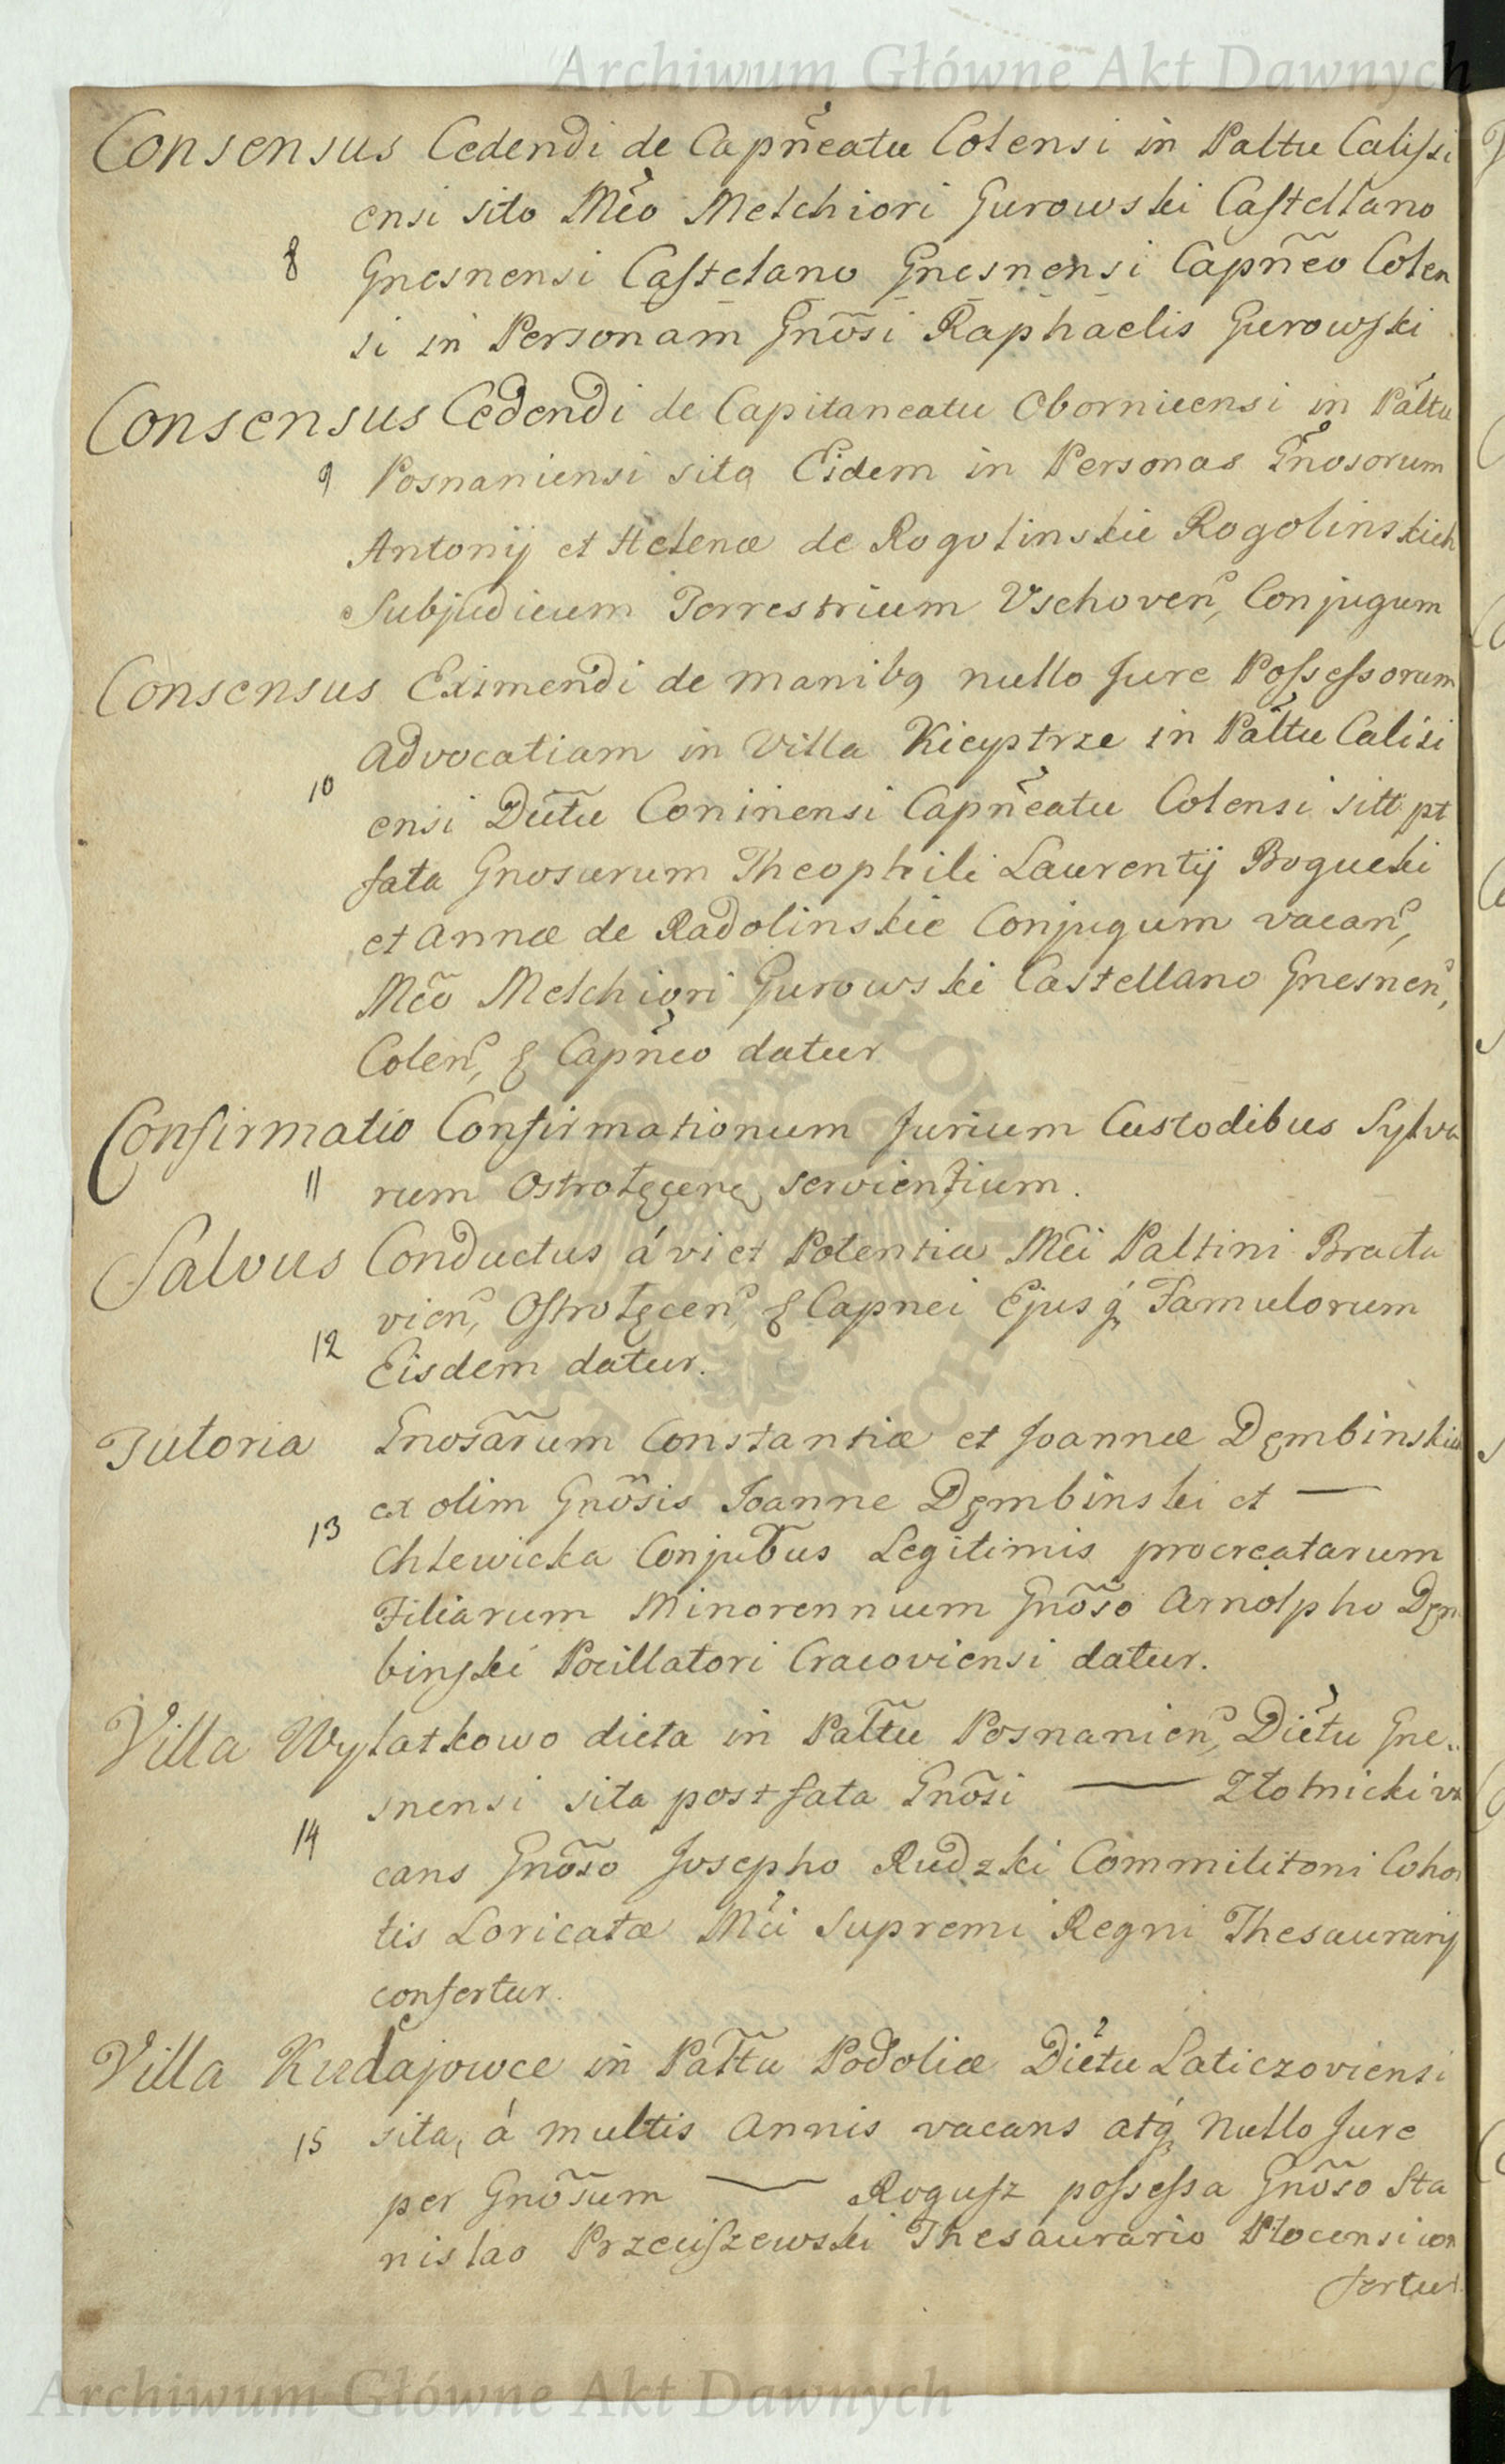 Archiwum Główne Akt Dawnych
Consensus Cedendi de Capnĕatu Colensi in Paltu Calissi
ensi sito Mĕo Melchiori Gurowski Castellano
8 Gnesnensi Castelano Gnesnensi Capñeo Colen
si in Personam Gnõsi Raphaelis Gurowski
Consensus Cedendi de Capitaneatu Obornicensi in Păltu
9 Posnaniensi sita Eidem in Personas Gnosorum
Antonij et Helenæ de Rogolinskie Rogolinskich
Subjudicum Terrestrium Vschoven, Conjugum
Consensus Eximendi de manibq nullo Jure Possessorum
Advocatiam in Villa Kieystrze in Păltu Calisi
10 ensi Dũtu Coninensi Capnĕatu Colensi sitt pt
fata Gnosorum Theophili Laurentij Bogucki
et Annæ de Radolinskie Conjugum vacan,
Mẽo Melchiori Gurowski Castellano Gnesnen,
Colen, & Capnĕo datur
Confirmatio Confirmationum Jurium Custodibus Sylva
11 rum Ostrołęcen, servientium.
Salvus Conductus á vi et Potentia Mĕi Paltini Bracla
vien, Ostrołęcen, & Capnei Ejusq́ Famulorum
12 Eisdem datur.
Tutoria Gnosãrum Constantiæ et Joannæ Dęmbinskie
ex olim Gnõsis Joanne Dęmbinski et —
13 Chlewicka Conjubus Legitimis procreatarum
Filiarum Minorennium Gnõso Arnolpho Dęm
binski Pocillatori Cracoviensi datur.
Villa Wylatkowo dicta in Pal̃tu Posnanien, Diĕtu Gne..
snensi sita post fata Gnõsi — Złotnicki va
14 cans Gnõso Josepho Rudzki Commilitoni Cohor
tis Loricatæ Mĕi Supremi Regni Thesaurarij
confertur.
Villa Kudajowce in Pal̃tu Podoliæ Diĕtu Laticzoviensi
15 sita, á multis Annis vacans atq́ Nullo Jure
per Gnõsum — Rogusz possessa Gnõso Sta
nislao Przeciszewski Thesaurario Płocensi con
fertur
Archiwum Główne Akt Dawnych